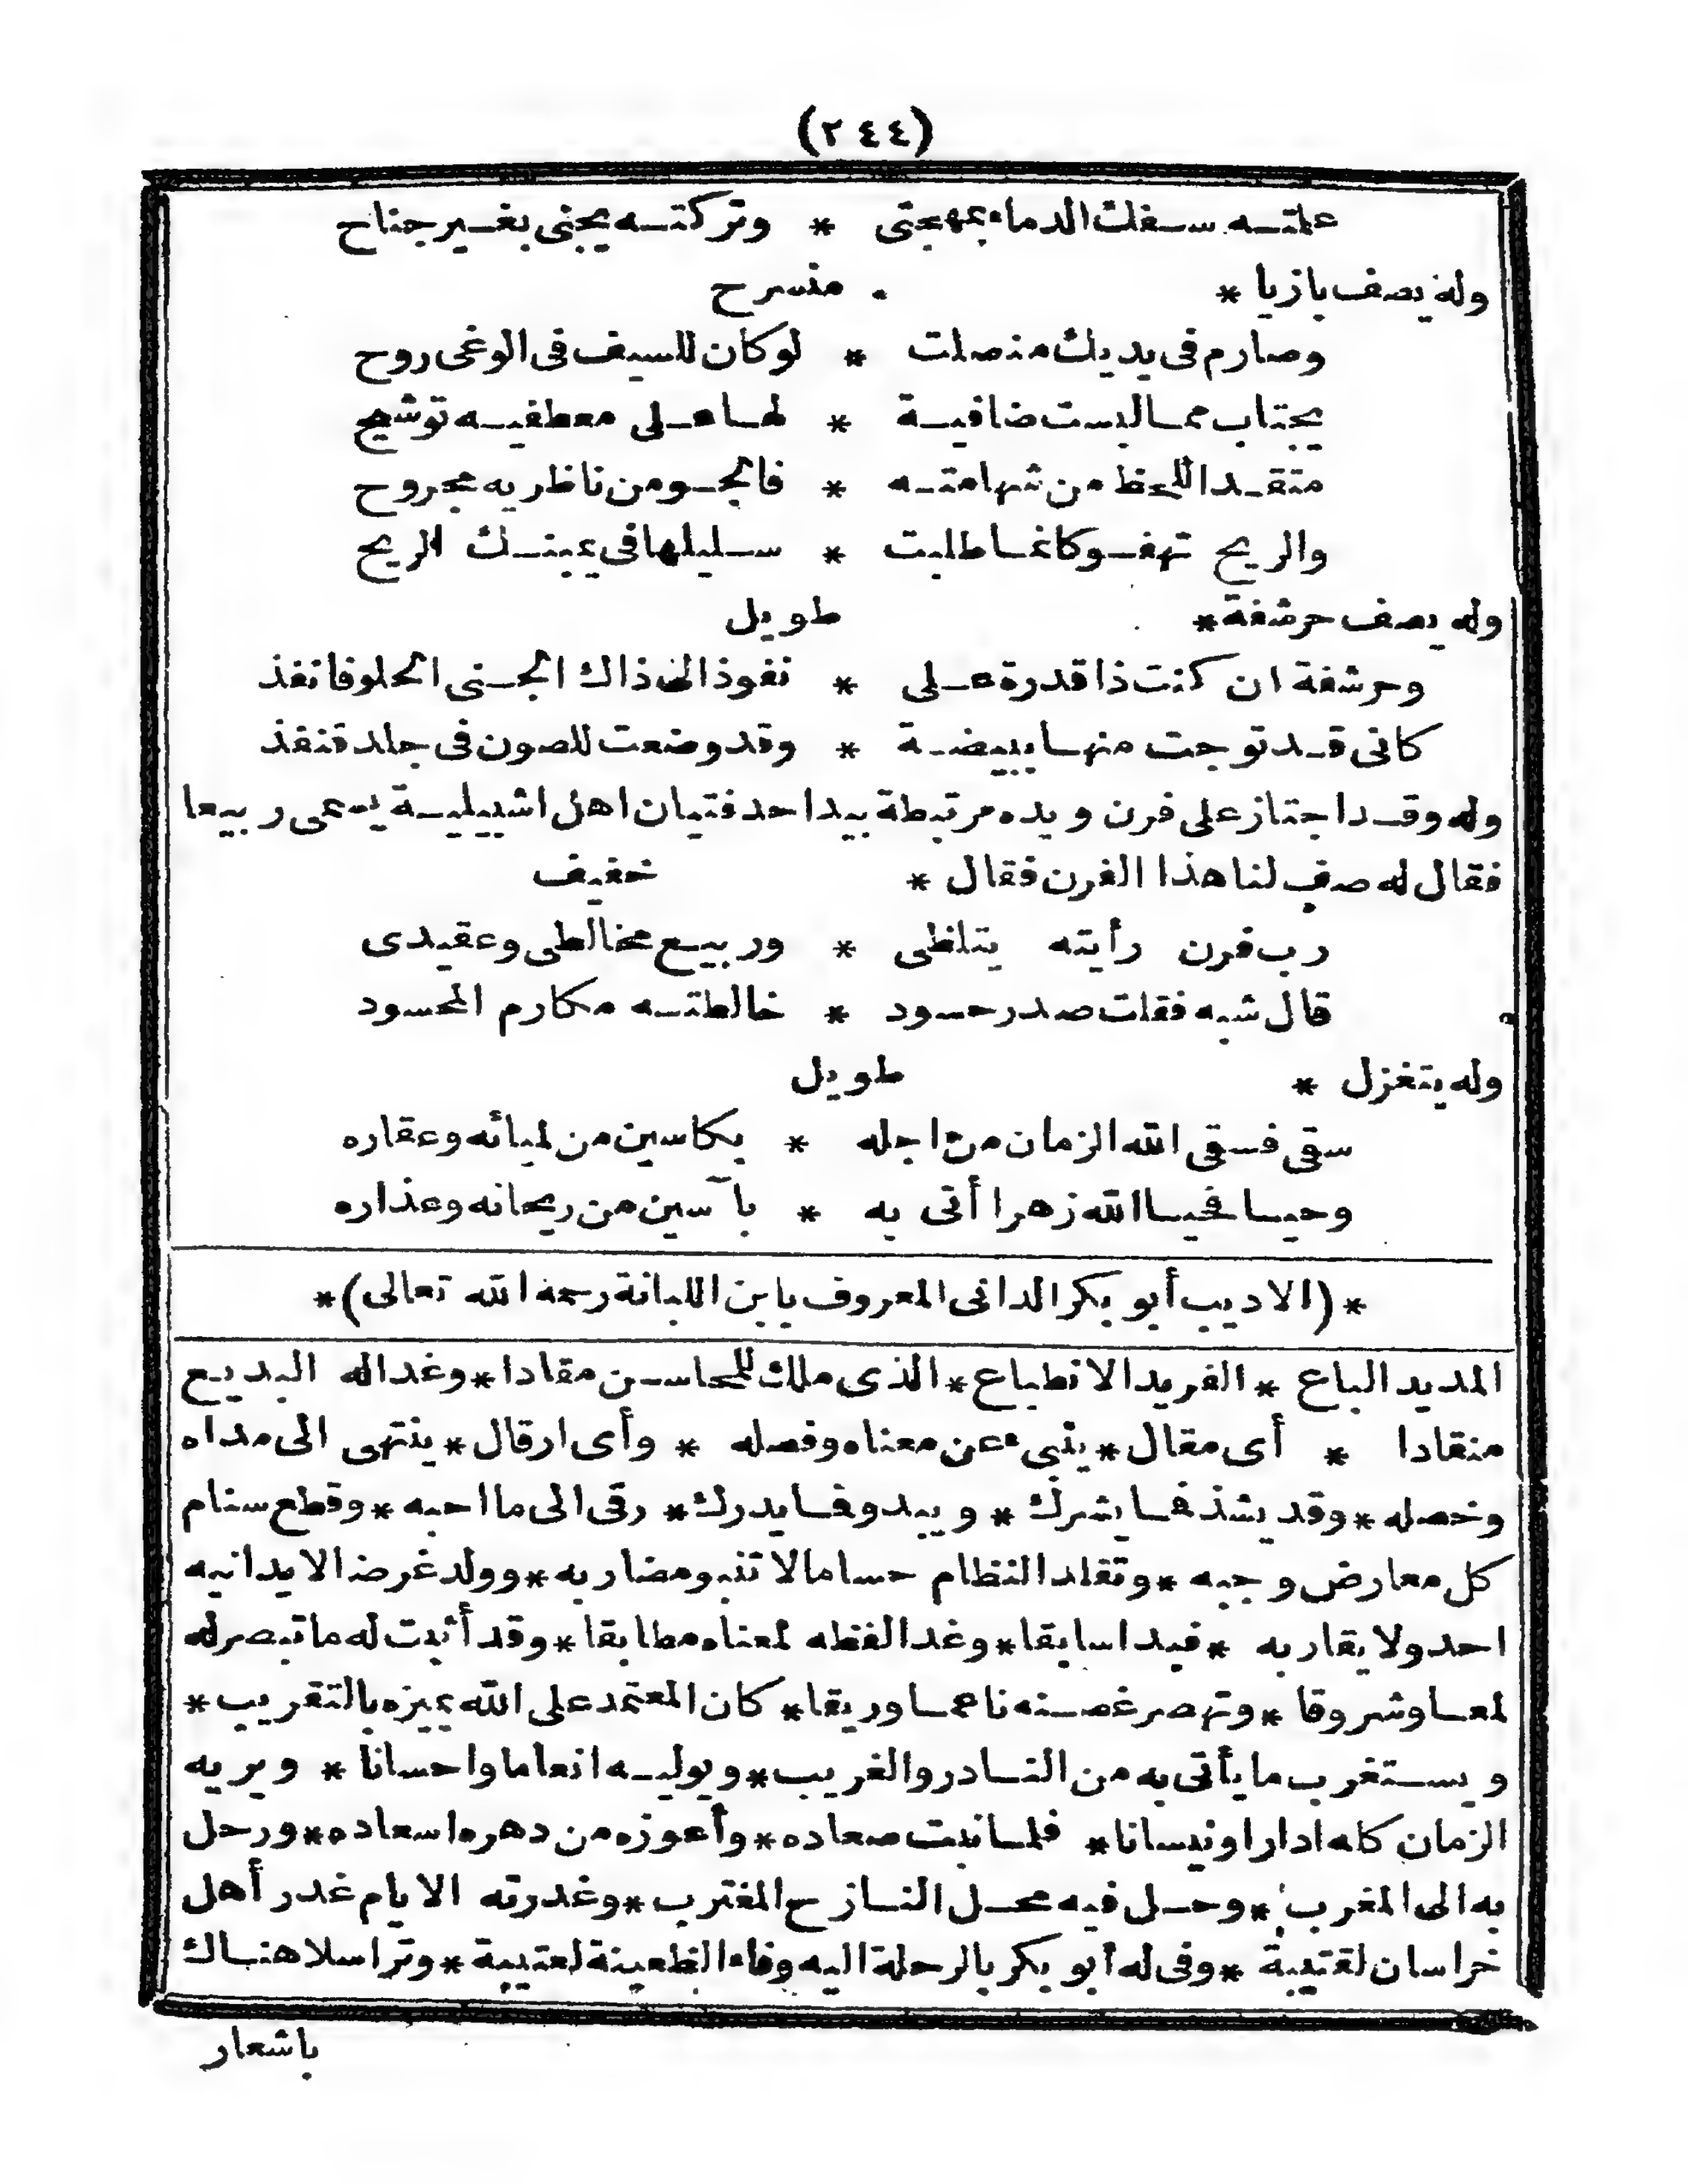 (٢٤٤)
علمتـه سـفك الدماء بمهجتى * وتركتـه يجنى بغـير جناح
وله يصف بازيا * منسرح
وصارم فى يديك منصلت * لو كان للسيف فى الوغى روح
يجتاب ممـا لبست ضافيـة * لهـا عـلى معطفيـه توشيح
متقـد اللحظ من شهامتـه * فالجـو من ناظريه مجروح
والريح تهفـو كانمـا طلبت * سـليلها فى يمينـك الريح
وله يصف حرشفة * طويل
وحرشفة ان كنت ذا قدرة عـلى * نفوذ الى ذاك الجـنى الحلو فانفذ
كانى قـد توجت منهـا ببيضـة * وقد وضعت للصون فى جلد قنفذ
وله وقـد اجتاز على فرن ويده مرتبطة بيد احد فتيان اهل اشبيليـة يدعى ربيعا
فقال له صف لنا هذا الفرن فقال * خفيف
رب فرن رأيته يتلظى * وربيـع مخالطى وعقيدى
قال شبه فقلت صدر حسود * خالطتـه مكارم المحسود
وله يتغزل * طويل
سقى فسقى الله الزمان من اجله * بكاسين من لميائه وعقاره
وحيـا فحيـا الله زهرا أتى به * بآسين من ريحانه وعذاره
*(الاديب أبو بكر الدانى المعروف بابن اللبانة رحمه الله تعالى)*
المديد الباع * الفريد الانطباع * الذى ملك للمحاسـن مقادا * وغدا له البديـع
منقادا * أى مقال * ينبىء عن معناه وفصله * وأى ارقال * ينتهى الى مداه
وخصله * وقد يشذ فمـا يشرك * ويبـدو فمـا يدرك * رقى الى ما احبه * وقطع سنام
كل معارض وجبه * وتقلد النظام حساما لا تنبو مضاربه * وولد غرضا لا يدانيه
احد ولا يقاربه * فبدا سابقا * وغدا لفظه لمعناه مطابقا * وقد أثبت له ما تبصر له
لمعـا وشروقا * وتهصر غصـنه ناعمـا وريقا * كان المعتمد على الله يميزه بالتقريب *
ويسـتغرب ما يأتى به من النـادر والغريب * ويوليـه انعاما واحسانا * ويريه
الزمان كله اداراونيسانا * فلمـا نبت صعاده * وأعوزه من دهره اسعاده * ورحل
به الى المغرب * وحـل فيه محـل النـازح المغترب * وغدرته الايام غدر أهل
خراسان لقتيبة * وفى له أبو بكر بالرحلة اليه وفاء الظعينة لعتيبة * وتراسلا هنـاك
باشعار